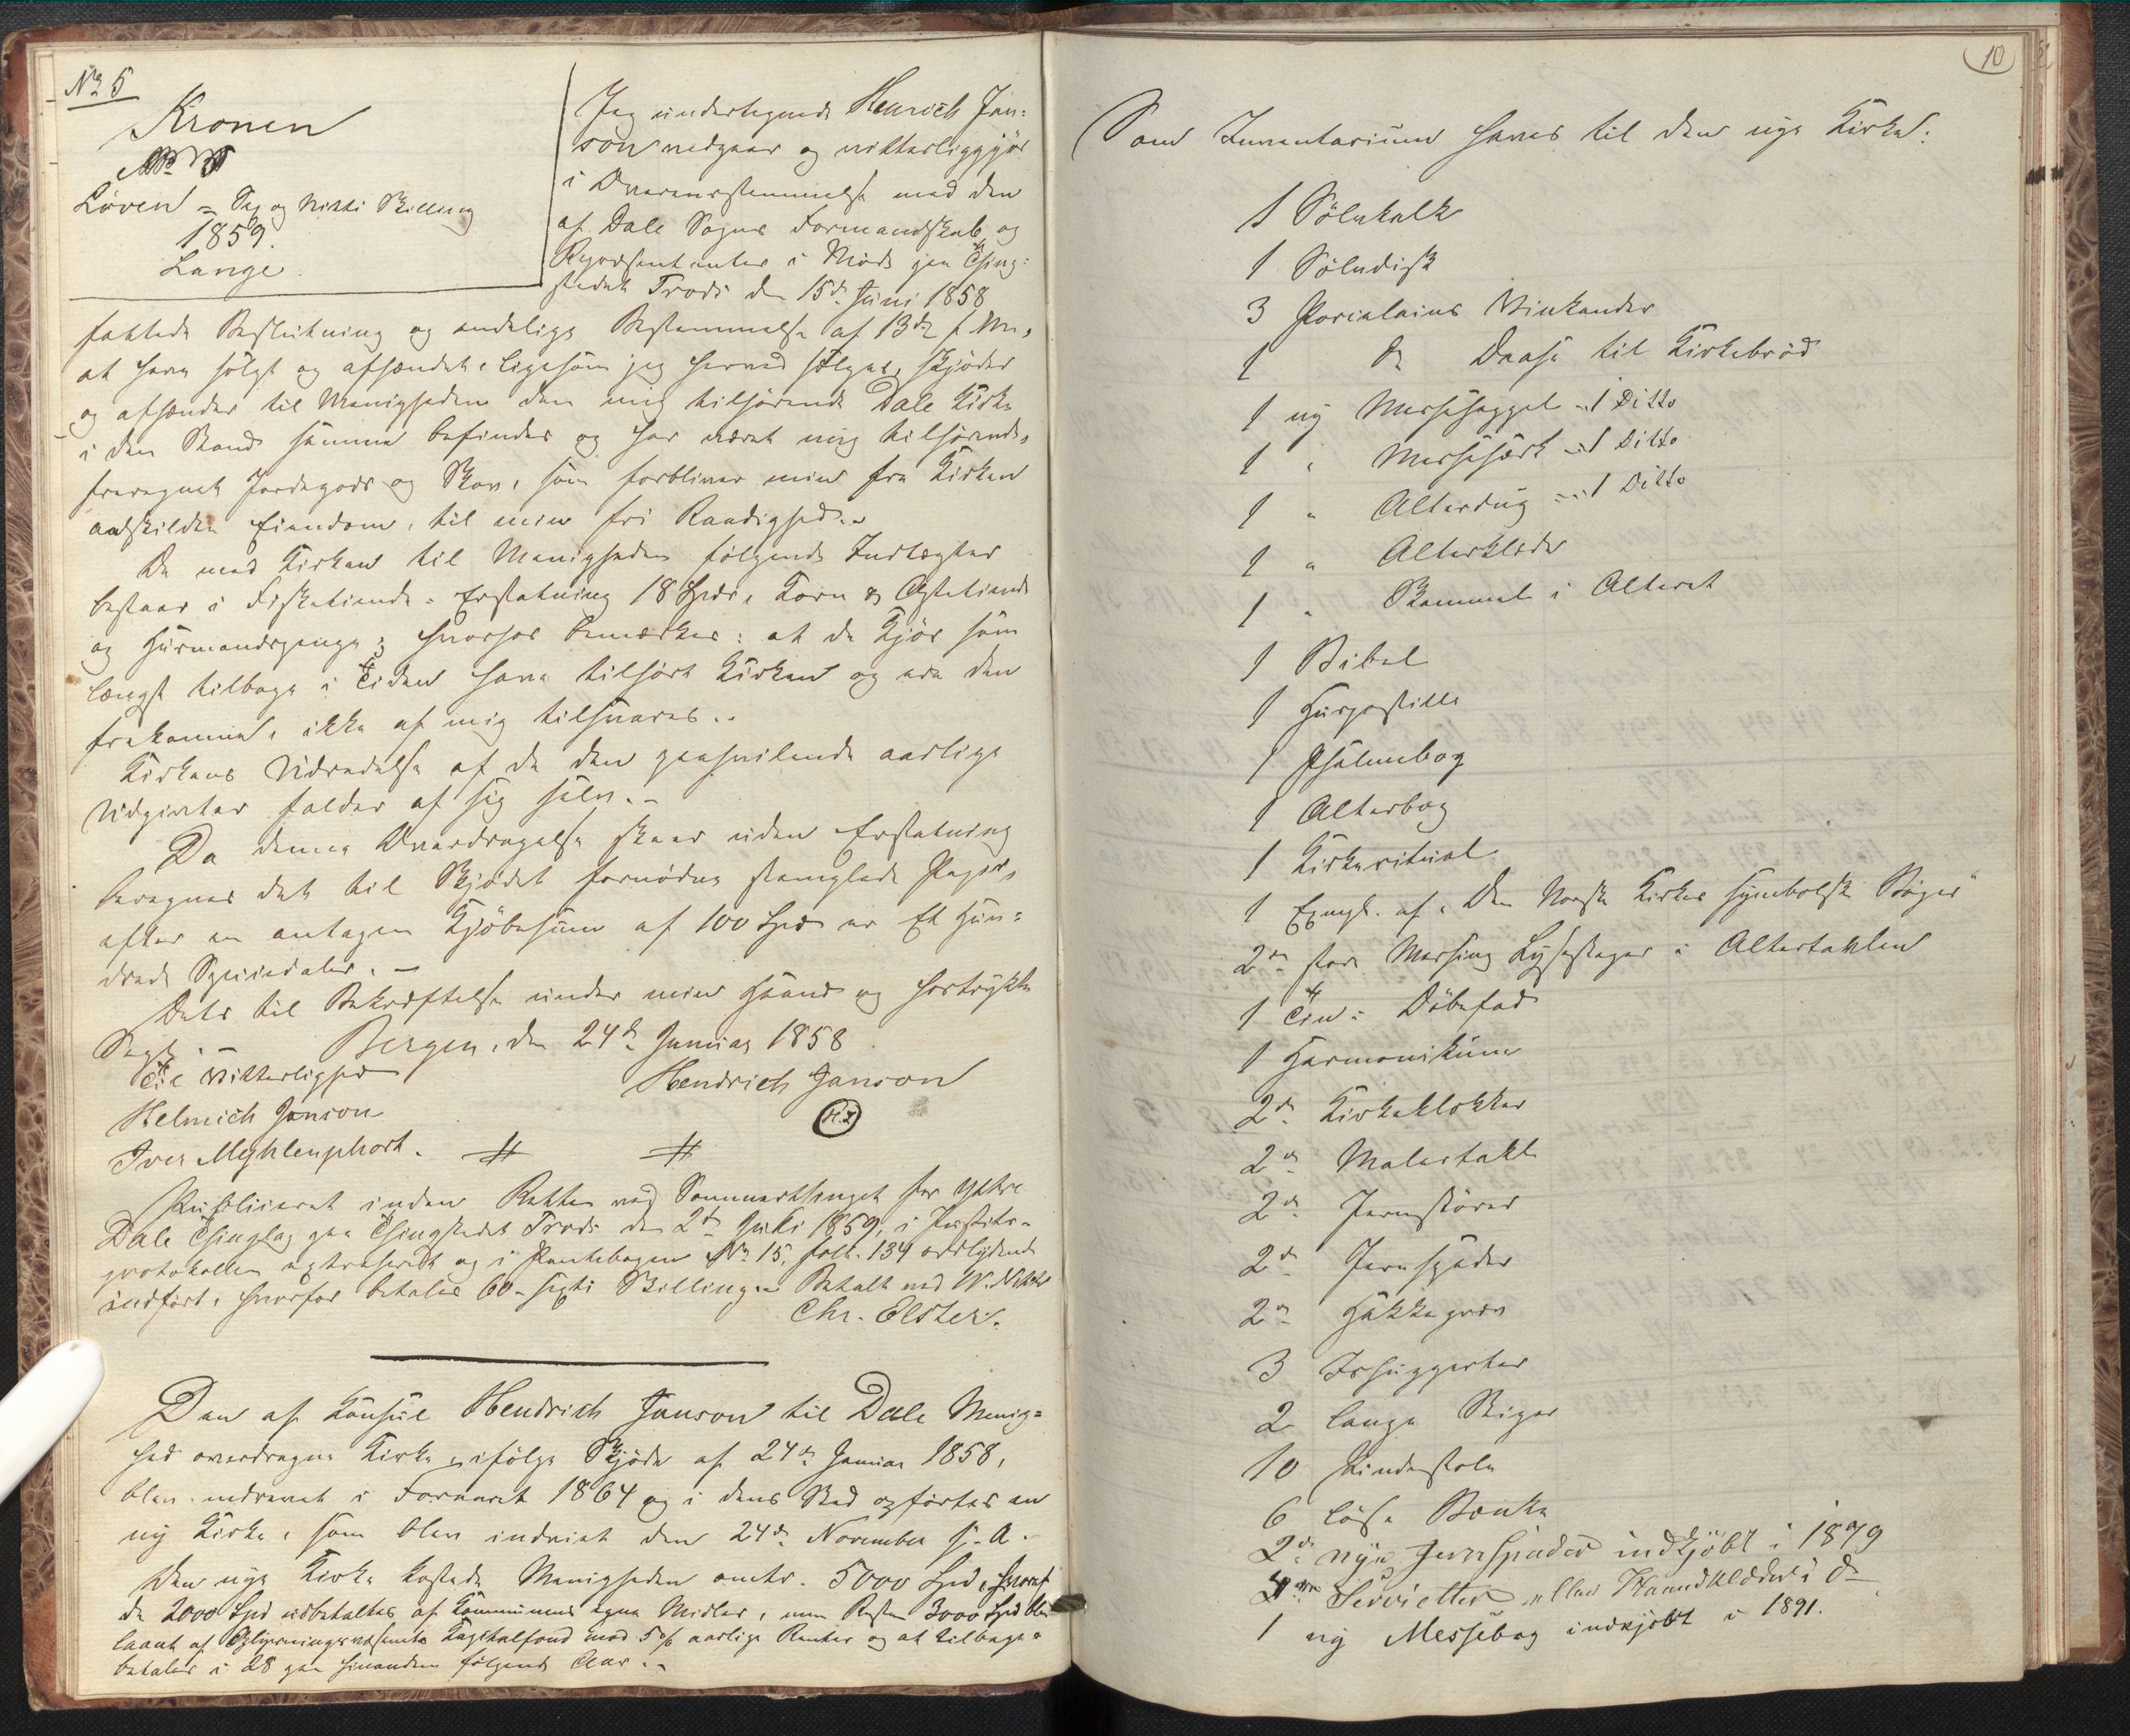 No 5
Kronen
Løven = Sex og Nitti Skilling
1859.
Lange.
Jeg undertegnede Henrich Jan:
son vedgaar og vitterliggjør
i Overensstemmelse med den
af Dale Sogns Formandskab og
Repræsentanter i Møde paa Thing:
stedet Trods den 15de Juni 1858
fattede Beslutning og endelige Bestemmelse af 13de f. M.,
at have solgt og afhændet, ligesom jeg herved sælger, skjøder
og afhænder til Menigheden den mig tilhørende Dale Kirke
i den Stand samme befindes og har været mig tilhørende,
fraregnet Jordegods og Skov, som forbliver min fra Kirken
adskildte Eiendom, til min fri Raadighed.
Da med Kirken til Menigheden følgende Indtægter
bestaar i Fisketiende-Erstatning 18 Spdr, Korn & Ostetiende
og Huusmandspenge; hvorhos bemærkes: at de Kjør som
længst tilbage i Tiden have tilhørt Kirken og ere den
frakomne, ikke af mig tilsvares..
Kirkens Udredelse af de den paahvilende aarlige
Udgivter falder af sig selv.-
Da denne Overdragelse skeer uden Erstatning
beregnes det til Skjødet fornødne stemplede Papir,
efter en antagen Kjøbesum af 100 Spd er Et Hun=
drede Speciedaler. -
Dets til Bekræftelse under min Haand og hostrykte
Segl. - Bergen, den 24de Januar 1858
Til Vitterlighed
Hendrich Janson
Helmich Janson
(H.J)
Iver Myhlenphort.
Publiceret inden Retten ved Sommerthinget for Yttre
Dale Thinglag paa Thingstedet Trods den 2de Juli 1859, i Justits-
protokollen extraheret og i Pantebogen No 15, foll. 134 ordlydende
indført, hvorfor betales 60 - sexti Skilling. Betalt med
Chr. Elster.
Den af Konsul Hendrich Janson til Dale Menig=
hed overdragne Kirke, ifølge Skjøde af 24de Januar 1858,
blev nedrevet i Foraaret 1864 og i dens Sted opførtes en
ny Kirke, som blev indviet den 24de November s. A.
Den nye Kirke kostede Menigheden omtr. 5000 Spd, hvoraf
de 2000 Spd udbetaltes af Kommunens egne Midler, men Resten 3000 Spd blev
laant af Oplysningsvæsenets Kapitalfond mod 5% aarlige Renter og at tilbage=
betales i 28 paa hinanden følgende Aar.
10
Som Inventarium haves til den nye Kirke:
1 Sölvkalk
1 Sölvdisk
3 Porcelains Vinkander
1 do Daase til Kirkebröd
1 ny Messehaggel - 1 Ditto
1 " Messesærk - 1 Ditto
1 " Alterdug - 1 Ditto
1 " Alterklæde
1 " Skammel i Alteret
1 Bibel
1 Huspostille
1 Psalmebog
1 Alterbog
1 Kirkeritual
1 Exempl. af "Den Norske Kirkes symbolske Böger"
2de store Messing Lysestager i Altertavlen
1 Tin- Döbefad
1 Harmonikum
2de Kirkeklokker
2de Nummertavler
2de Jernstörer
2de Jernspader
2de Hakke
3 Ishuggerter
2 lange Stiger
10 Pindestole
6 löse Bænke
2de nye Jernspader indkjöbt i 1879
Servietter eller Haandklæder i do
1 ny Messebog indkjøbt i 1891.